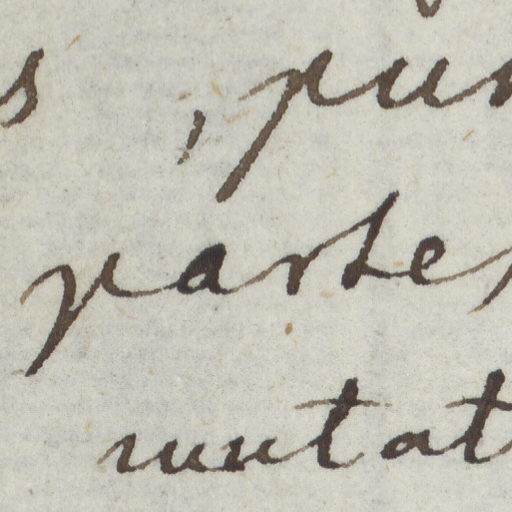 s, pun
partes
mutat